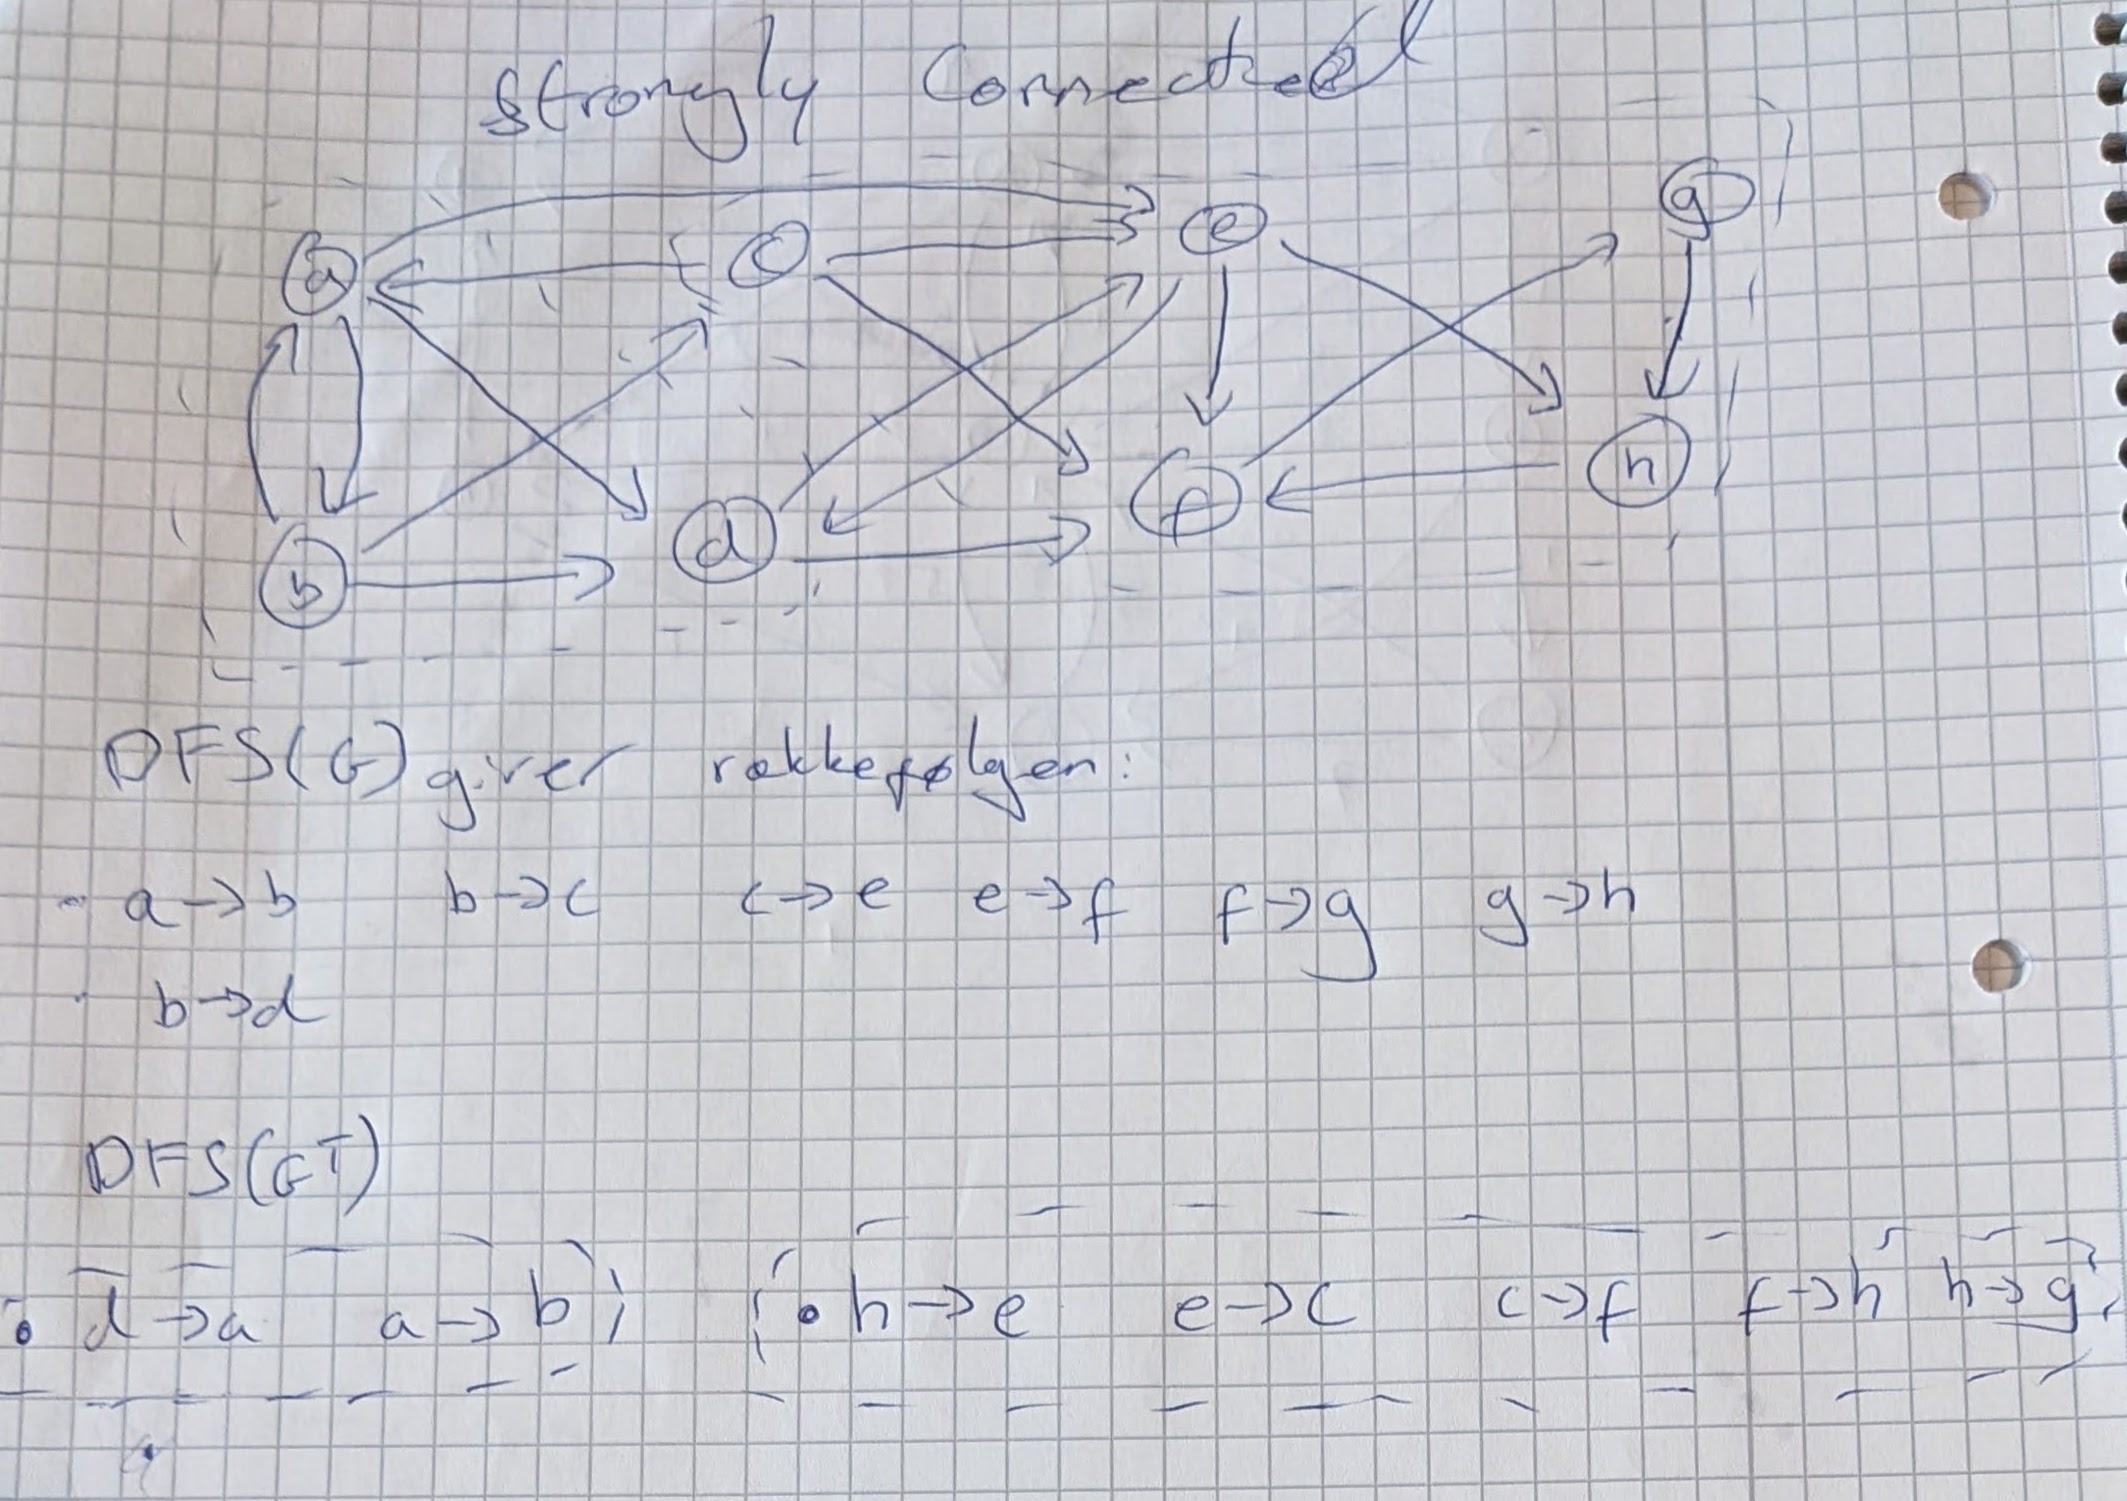 Strongly Connected
a c e g
b d f h
DFS(G) giver rækkefølgen:
- a → b b → c c → e e → f f → g g → h
· b → d
DFS(GT)
• d → a a → b • h → e e → c c → f f → h h → g